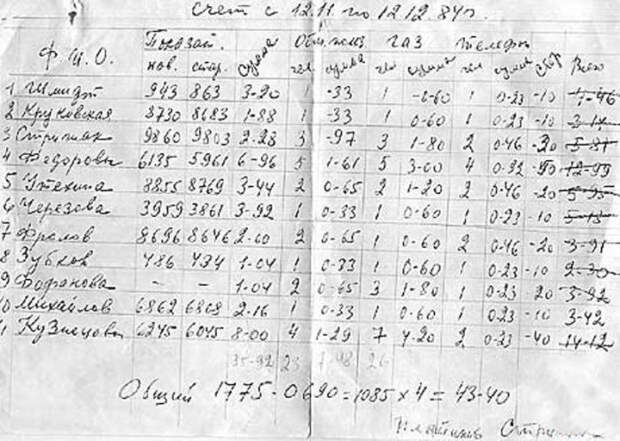 Счет с 12.11 по 12.12.84г.
Показан. Общ. полз. газ телефон
Ф.И.О. нов. стар. сумма чел сумма чел сумма чел сумма сбор Всего
1 Шмидт 943 863 3-20 1 -33 1 -60 1 0-23 -10
2 Круковская 8730 8683 1-88 1 -33 1 0-60 1 0-23 -10
3 Стрижак 9860 9803 2-28 3 -97 3 1-80 2 0-46 -20 5-81
4 Федоровы 6135 5961 6-96 5 1-61 5 3-00 4 0-92 12-99
5 Утехина 8855 8769 3-44 2 0-65 2 1-20 2 0-46 -20 5-95
6 Черезова 3959 3861 3-92 1 0-33 1 0-60 1 0-23 -10
7 Фролов 8696 8646 2-00 2 0-65 1 0-60 2 0-46 -20 3-91
8 Зубков 486 1-04 1 0-33 1 0-60 1 0-23 -10 2-30
9 - - 1-04 2 0-65 3 1-80 1 0-23 20 3-92
10 Михайлов 6862 6808 2-16 1 0-33 1 0-60 1 0-23 -10 3-42
11 Кузнецовы 6245 6045 8-00 4 1-29 7 4-20 2 0-23 -40 14-12
35-92 23 7-98 26
Общий 1775-0690=1085×4=43-40